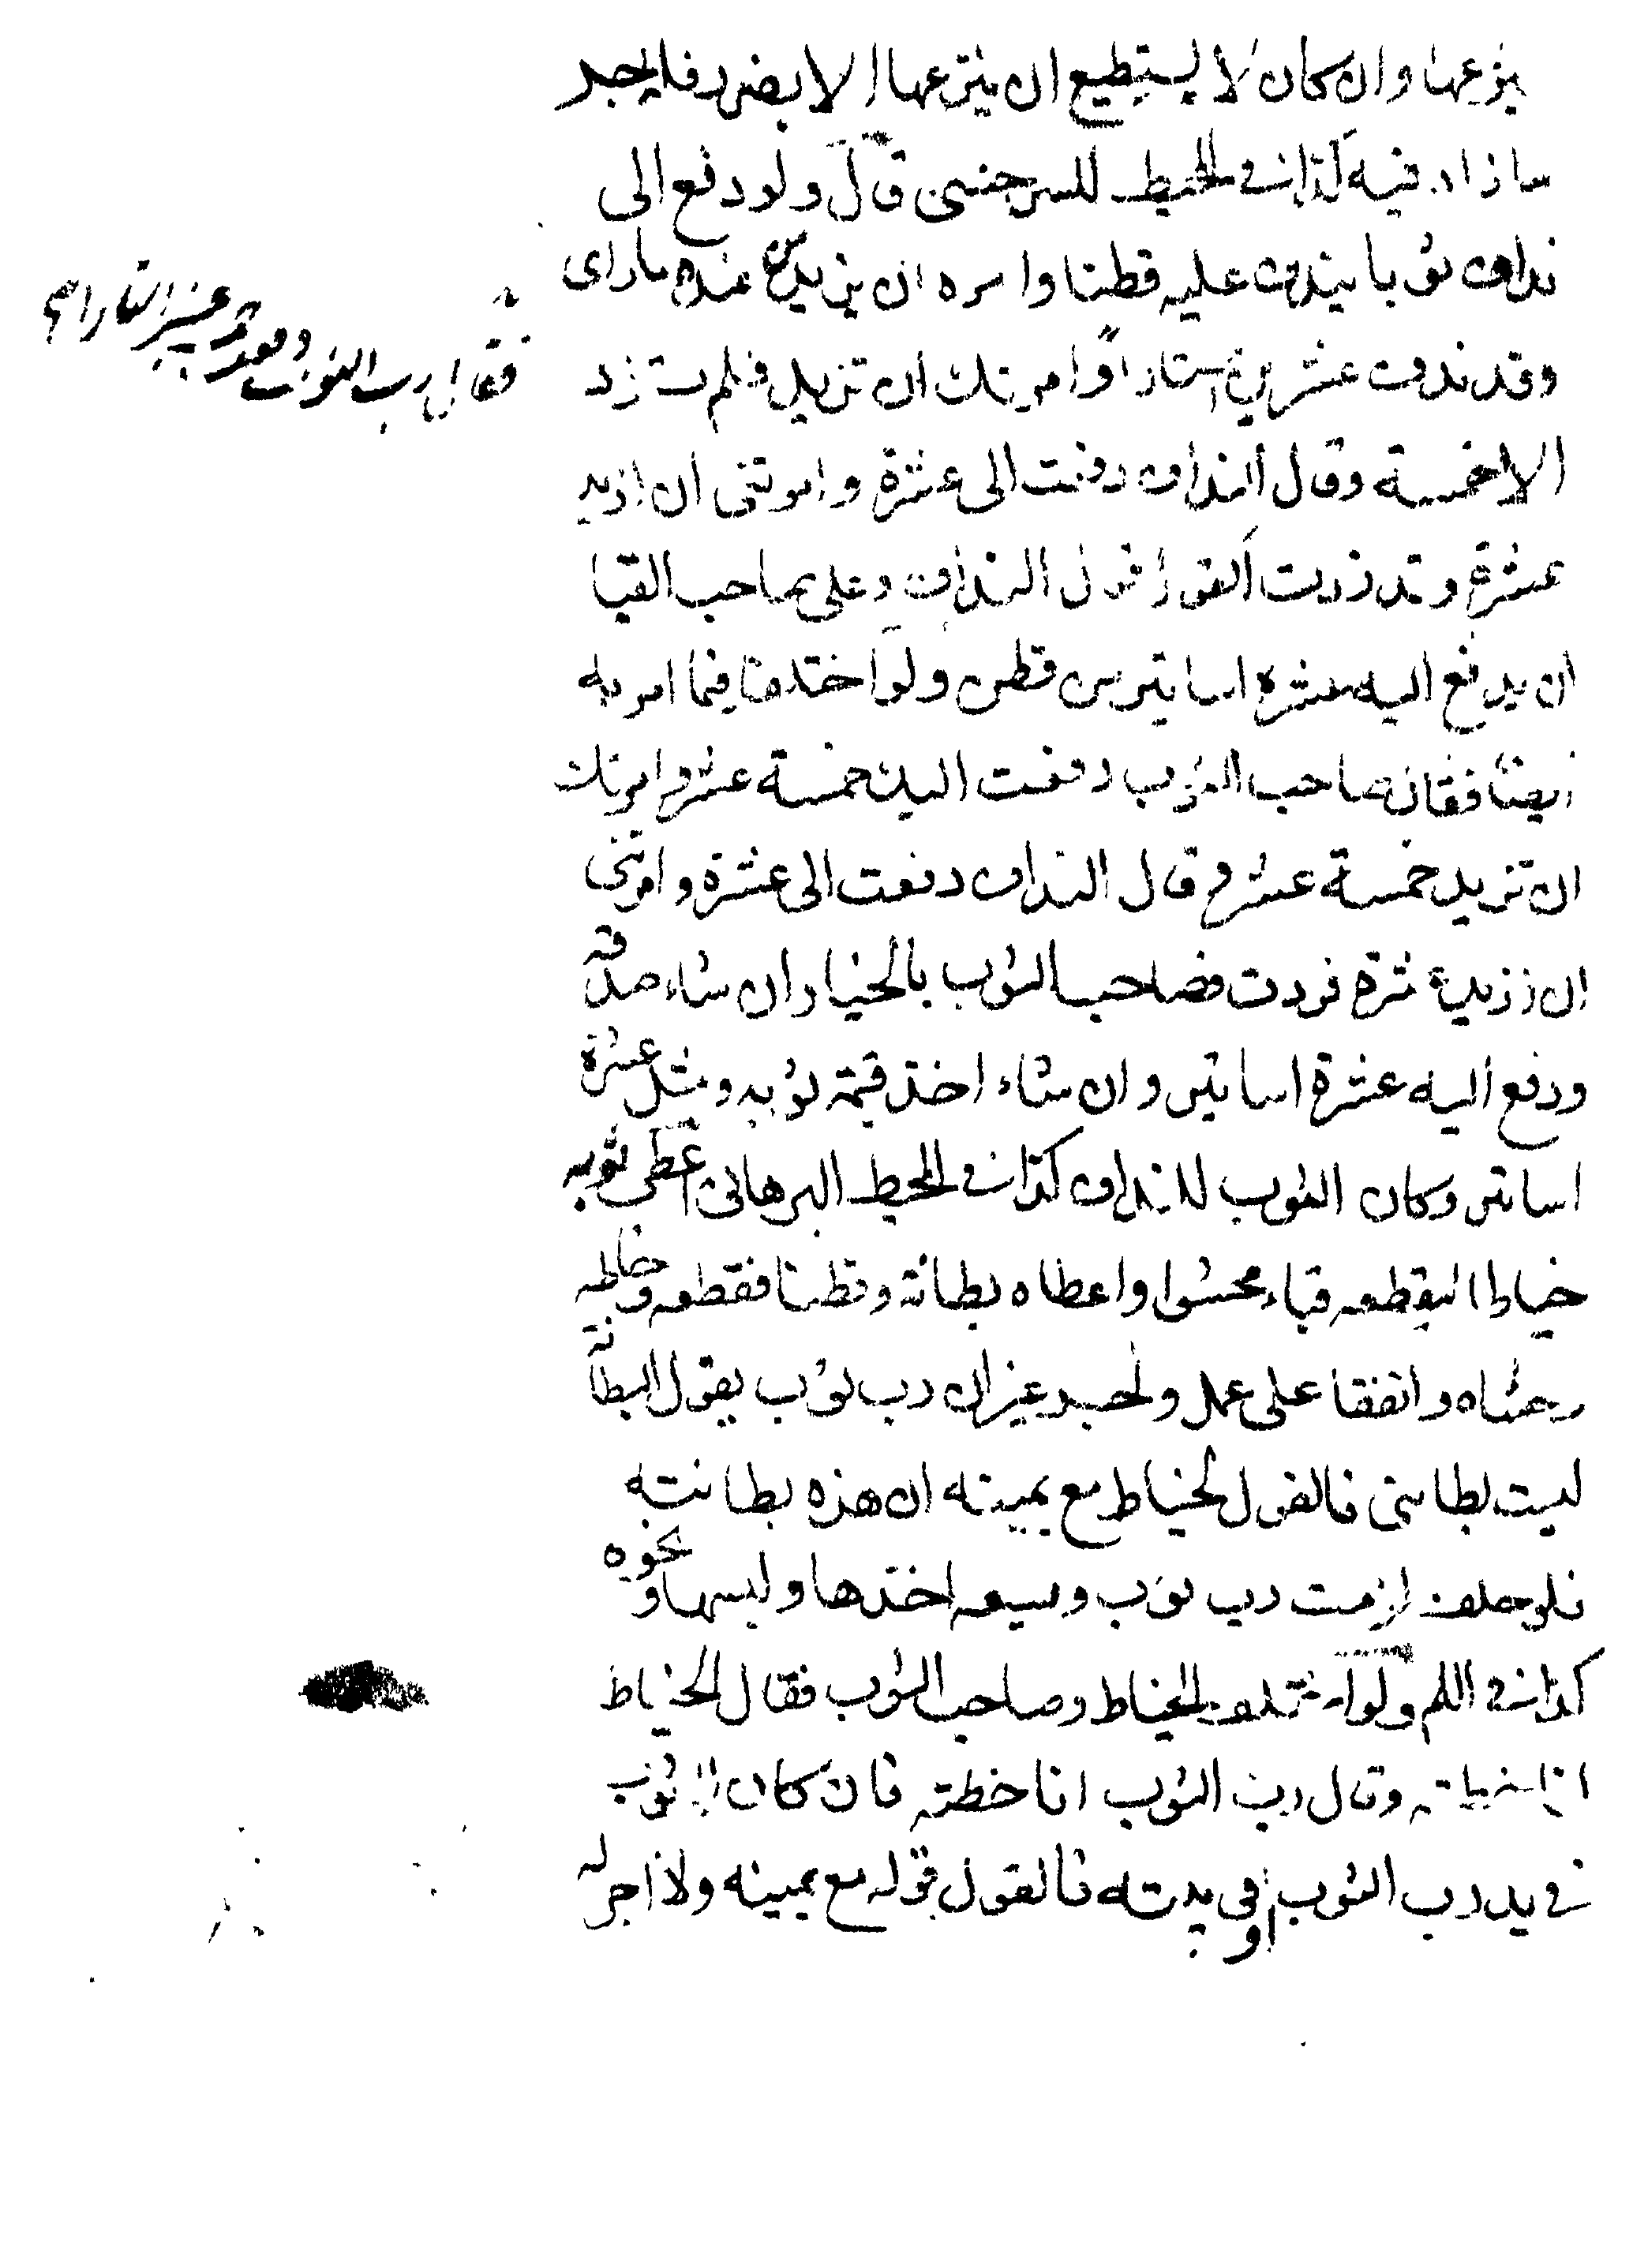 ينزعها وان كان لا يستطيع ان ينتزعها الا بضرر فله اجر
ما زاد فيه كذا في المحيط للسرخسي قال ولو دفع الى
نداف ثوبا يندف عليه قطنا وامره ان يزيد من عنده ما راى
وقد ندف عشرين استارا وامرتك ان تزيد فلم تزد
فقال رب الثوب دفعت خمسة عشر استارا
الا خمسة وقال النداف دفعت الى عشرة وامرتنى ان ازيد
عشرة وقد زدت القول قول النداف وعلى صاحب القبا
ان يدفع اليه عشرة اساتير من قطن ولو اختلفا فيما امر به
ايضا فقال صاحب الثوب دفعت اليك خمسة عشر وامرتك
ان تزيد خمسة عشر وقال النداف دفعت الى عشرة وامرتنى
ان ازيد عشرة فزدت فصاحب الثوب بالخيار ان شاء صدقه
ودفع اليه عشرة اساتير وان شاء اخذ قيمة ثوبه ومثل عشرة
اساتير وكان الثوب للنداف كذا في المحيط البرهانى اعطى ثوبه
خياطا ليقطعه قباء محشوا واعطاه بطانة وقطنا فقطعه وخاطه
وحشاه واتفقا على عمل واحد غير ان رب ثوب يقول البطانة
ليست بطانتى فالقول لخياط مع يمينه ان هذه بطانته
فلو حلف لزمت رب ثوب وسيعه اخذها ولبسها ونحوه
كذا في اللم ولو اختلف الخياط وصاحب الثوب فقال الخياط
انا خطته وقال رب الثوب انا خطته فان كان الثوب
في يد رب الثوب او في يدته فالقول قوله مع يمينه ولا اجر له